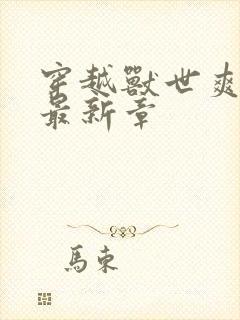 穿越獸世爽
最新章
馬東